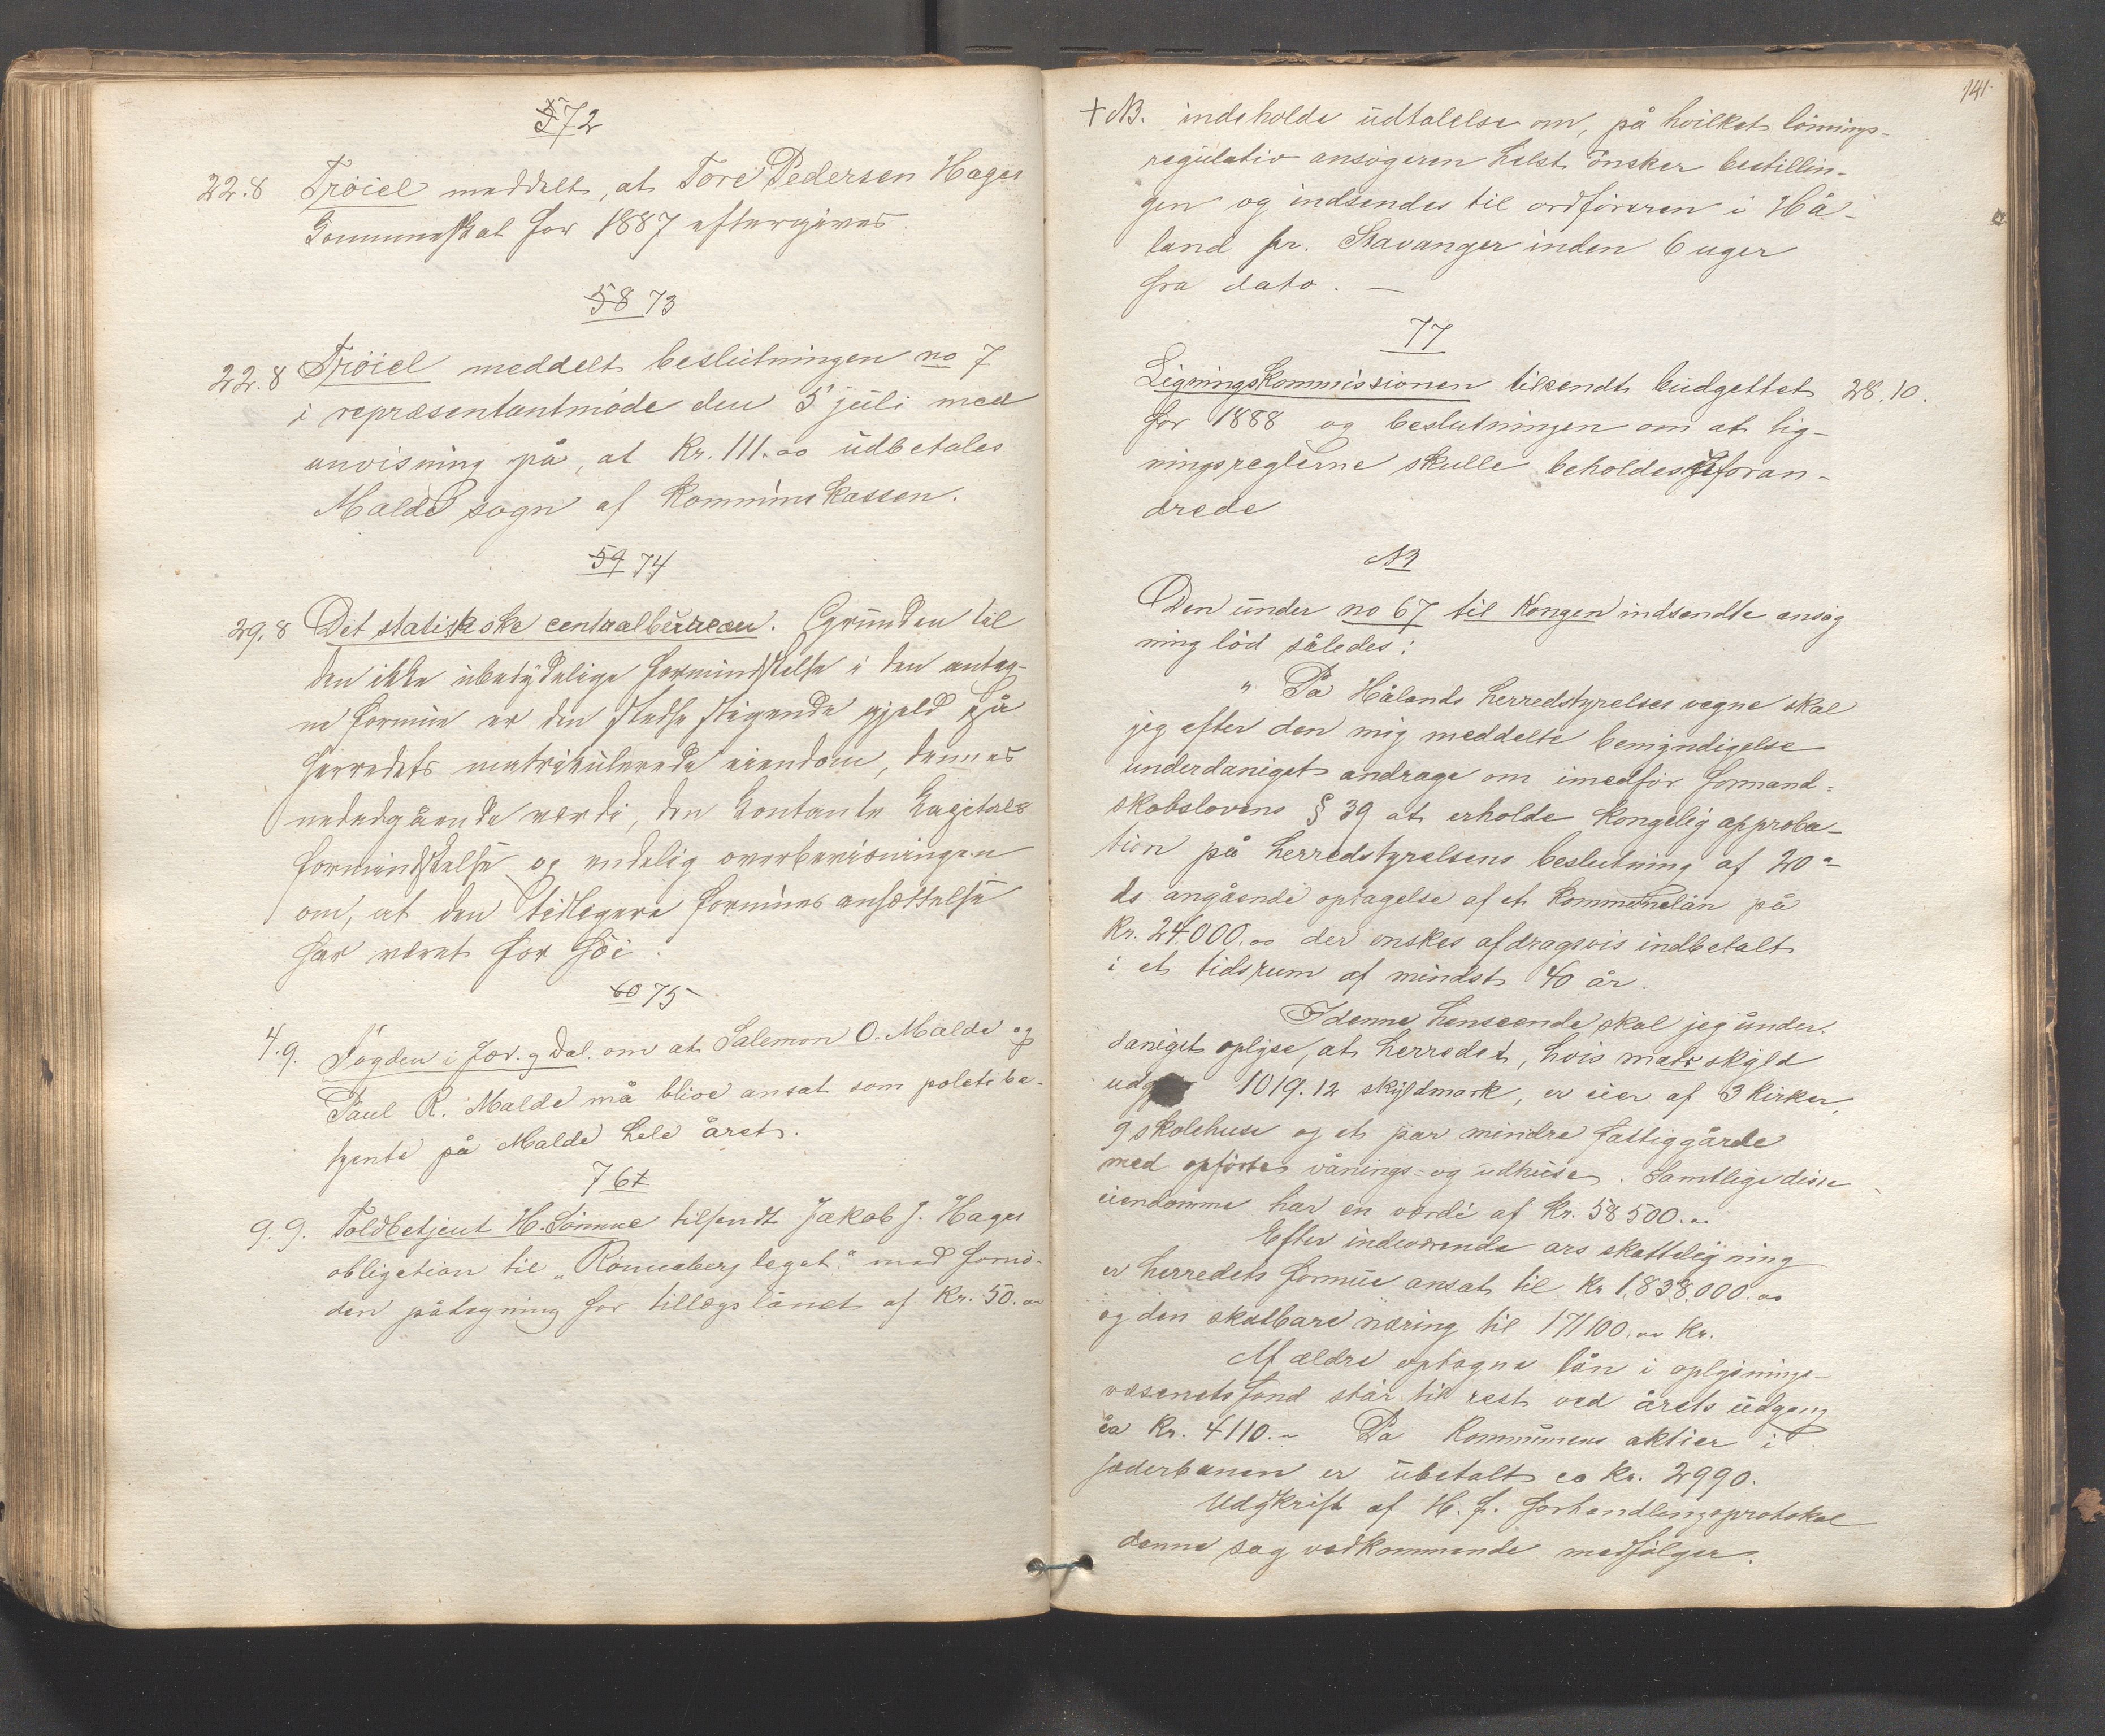 72
22.8 Trøiel meddelt, at Tore Pedersen Hages
Communeskat for 1887 eftergives.
58 73
22.8 Trøiel meddelt beslutningen no 7
i repræsentantmøde den 5 juli med
anvisning på, at Kr. 111.00 udbetales
Malde sogn af Kommunekassen.
59 74
29.8 Det statistiske centralbureau. Grunden til
den ikke ubetydelige formindskelse i den antag-
ne formue er den stedse stigende gjæld på
herredets matrikulerede eiendom, dennes
nedadgående værdi, den kontante kapitals
formindskelse og endelig overbevisningen
om, at den tidligere formues ansættelse
har været for høi.
60 75
4.9. Fogden i Jær. og Dal. om at Salemon O. Malde og
Paul R. Malde må blive ansat som politibe-
tjente på Malde hele året.
76 +
9.9. Toldbetjent H. Sømme tilsendt Jakob J. Hages
obligation til "Rønneberg legat" med fornø-
den påtegning for tillægslånet af Kr. 50.00
141
+ NB. indeholde udtalelse om, på hvilket lønnings-
regulativ ansøgeren helst ønsker bestillin-
gen og indsendes til ordføreren i Hå-
land pr. Stavanger inden 6 uger
fra dato. —
77
Ligningskommissionen tilsendt budgettet 28.10.
for 1888 og beslutningen om at lig-
ningsreglerne skulle beholdes uforan-
drede
NB
Den under no 67 til Kongen indsendte ansøg
ning lød således:
"På Hålands herredstyrelses vegne skal
jeg efter den mig meddelte bemyndigelse
underdanigst andrage om imedfør formand-
skabslovens § 39 at erholde kongelig approba-
tion på herredstyrelsens beslutning af 20 -
ds angående optagelse af et kommunelån på
Kr. 24,000.00 der ønskes afdragsvis indbetalt
i et tidsrum af mindst 40 år.
I denne henseende skal jeg under-
danigst oplyse, at herredet, hvis matr skyld
udg 1019.12 skyldmark, er eier af 3 kirker,
9 skolehuse og et par mindre fattiggårde
med opførte vånings- og udhuse. Samtlige disse
eiendomme har en værdi af Kr. 58500.00
Efter indeværende års skatteligning
er herredets formue ansat til Kr 1,838,000.00
og den skatbare næring til 171100.00 Kr.
Af ældre optagne lån i oplysnings-
væsenets fond står til rest ved årets udgang
ca Kr. 4110.- På Kommunens aktier i
Jæderbanen er ubetalt ca Kr. 2990.
Udskrift af H. f. forhandlingsprotokol
denne sag vedkommende medfølger.